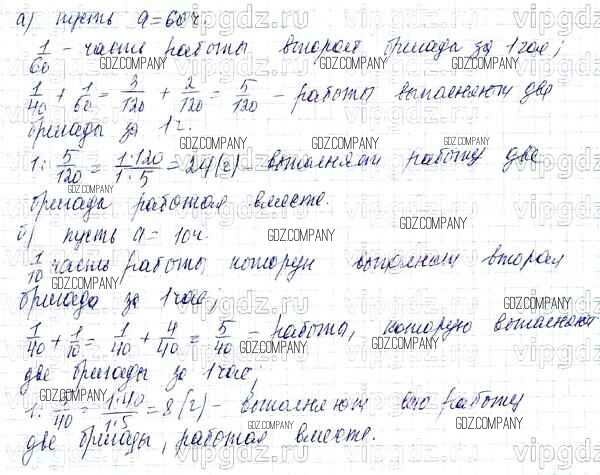 а) пусть a=60ч.
1/60 - часть работы вторая бригада за 1 час;
1/40 + 1/60 = 3/120 + 2/120 = 5/120 - работы выполняют две
бригады за 1ч.
1 : 5/120 = 1·120/1·5 = 24(ч) - выполняют работу две
бригады работая вместе.
б) пусть a = 10ч.
1/10 часть работы которую выполняет вторая
бригада за 1 час;
1/40 + 1/10 = 1/40 + 4/40 = 5/40 - работа, которую выполняют
две бригады за 1 час;
1 : 5/40 = 1·40/1·5 = 8(ч) - выполняют всю работу
две бригады, работая вместе.